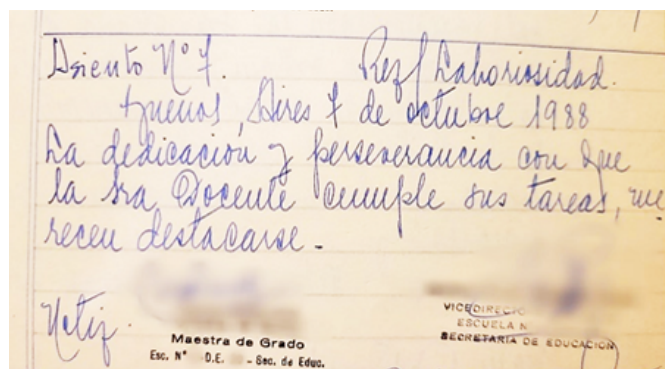 Asiento Nº 7. Ref/ Laboriosidad.
Buenos Aires 7 de octubre 1988
La dedicación y perseverancia con que
la Sra Docente cumple sus tareas, me
recen destacarse.-
Notif.
VICEDIRECTO
Maestra de Grado
ESCUELA N
Esc. Nº D.E. - Sec. de Educ.
SECRETARIA DE EDUCACIÓN